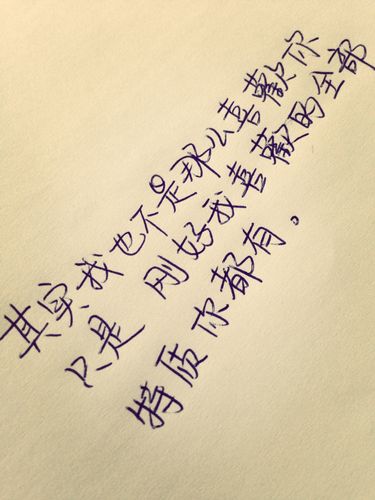 其实我也不是那么喜歡你
只是 刚好我喜歡的全部
特质你都有。